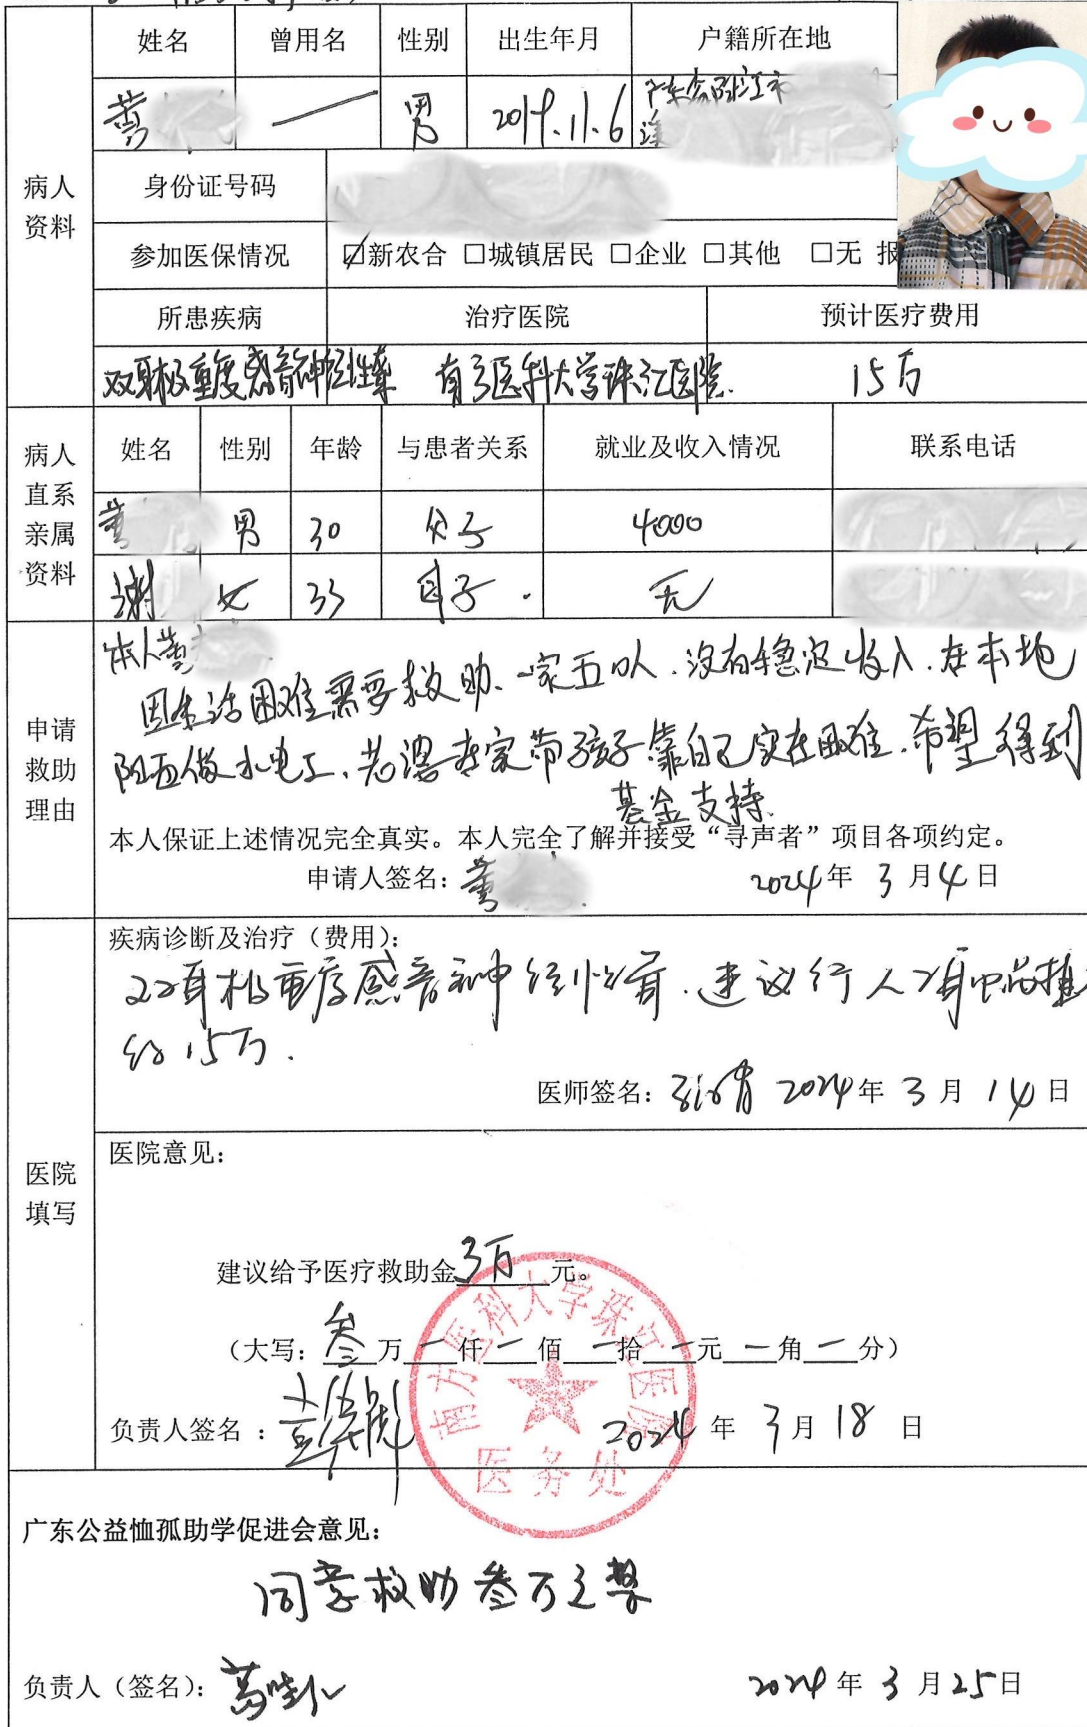 姓名 曾用名 性别 出生年月 户籍所在地
黄 — 男 2019.11.6 广东省阳江市
病人资料
身份证号码
参加医保情况 ☑新农合 □城镇居民 □企业 □其他 □无 报
所患疾病 治疗医院 预计医疗费用
双耳极重度感音神经性聋 南方医科大学珠江医院. 15万
病人直系亲属资料
姓名 性别 年龄 与患者关系 就业及收入情况 联系电话
黄 男 30 父子 4000
谢 女 33 母子. 无
申请救助理由
本人黄
因生活困难需要救助、一家五口人.没有稳定收入.在本地
阳西做水电工、老婆在家带孩子靠自己实在困难.希望得到
基金支持.
本人保证上述情况完全真实。本人完全了解并接受“寻声者”项目各项约定。
申请人签名：黄 2024年 3 月4日
医院填写
疾病诊断及治疗（费用）：
双耳极重度感音神经性聋.建议行人工耳蜗植
约15万.
医师签名： 2024年 3 月 14 日
医院意见：
建议给予医疗救助金3万元。
（大写：叁万一仟一佰一拾一元一角一分）
负责人签名： 2024 年 3月 18 日
南方医科大学珠江医院
医务处
广东公益恤孤助学促进会意见：
同意救助叁万元整
负责人（签名）： 2024 年 3 月25日